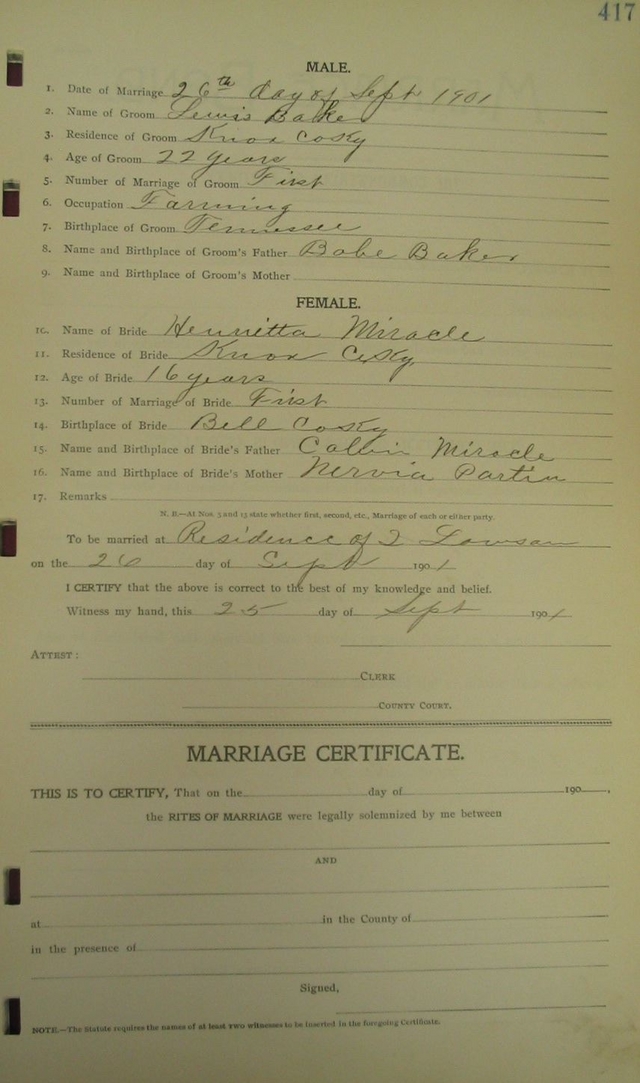 417
MALE.
1. Date of Marriage 26th day of Sept 1901
2. Name of Groom Lewis Baker
3. Residence of Groom Knox Co Ky
4. Age of Groom 22 years
5. Number of Marriage of Groom First
6. Occupation Farming
7. Birthplace of Groom Tennessee
8. Name and Birthplace of Groom's Father Bobe Baker
9. Name and Birthplace of Groom's Mother
FEMALE.
10. Name of Bride Henrietta Miracle
11. Residence of Bride Knox Co Ky
12. Age of Bride 16 years
13. Number of Marriage of Bride First
14. Birthplace of Bride Bell Co Ky
15. Name and Birthplace of Bride's Father Calvin Miracle
16. Name and Birthplace of Bride's Mother Nervia Partin
17. Remarks
N. B.—At Nos. 5 and 13 state whether first, second, etc., Marriage of each or either party.
To be married at Residence of Lawson
on the 26 day of Sept 1901
I CERTIFY that the above is correct to the best of my knowledge and belief.
Witness my hand, this 25 day of Sept 1901
ATTEST:
CLERK
COUNTY COURT.
MARRIAGE CERTIFICATE.
THIS IS TO CERTIFY, That on the day of 190 ,
the RITES OF MARRIAGE were legally solemnized by me between
AND
at in the County of
in the presence of
Signed,
NOTE.—The Statute requires the names of at least two witnesses to be inserted in the foregoing Certificate.